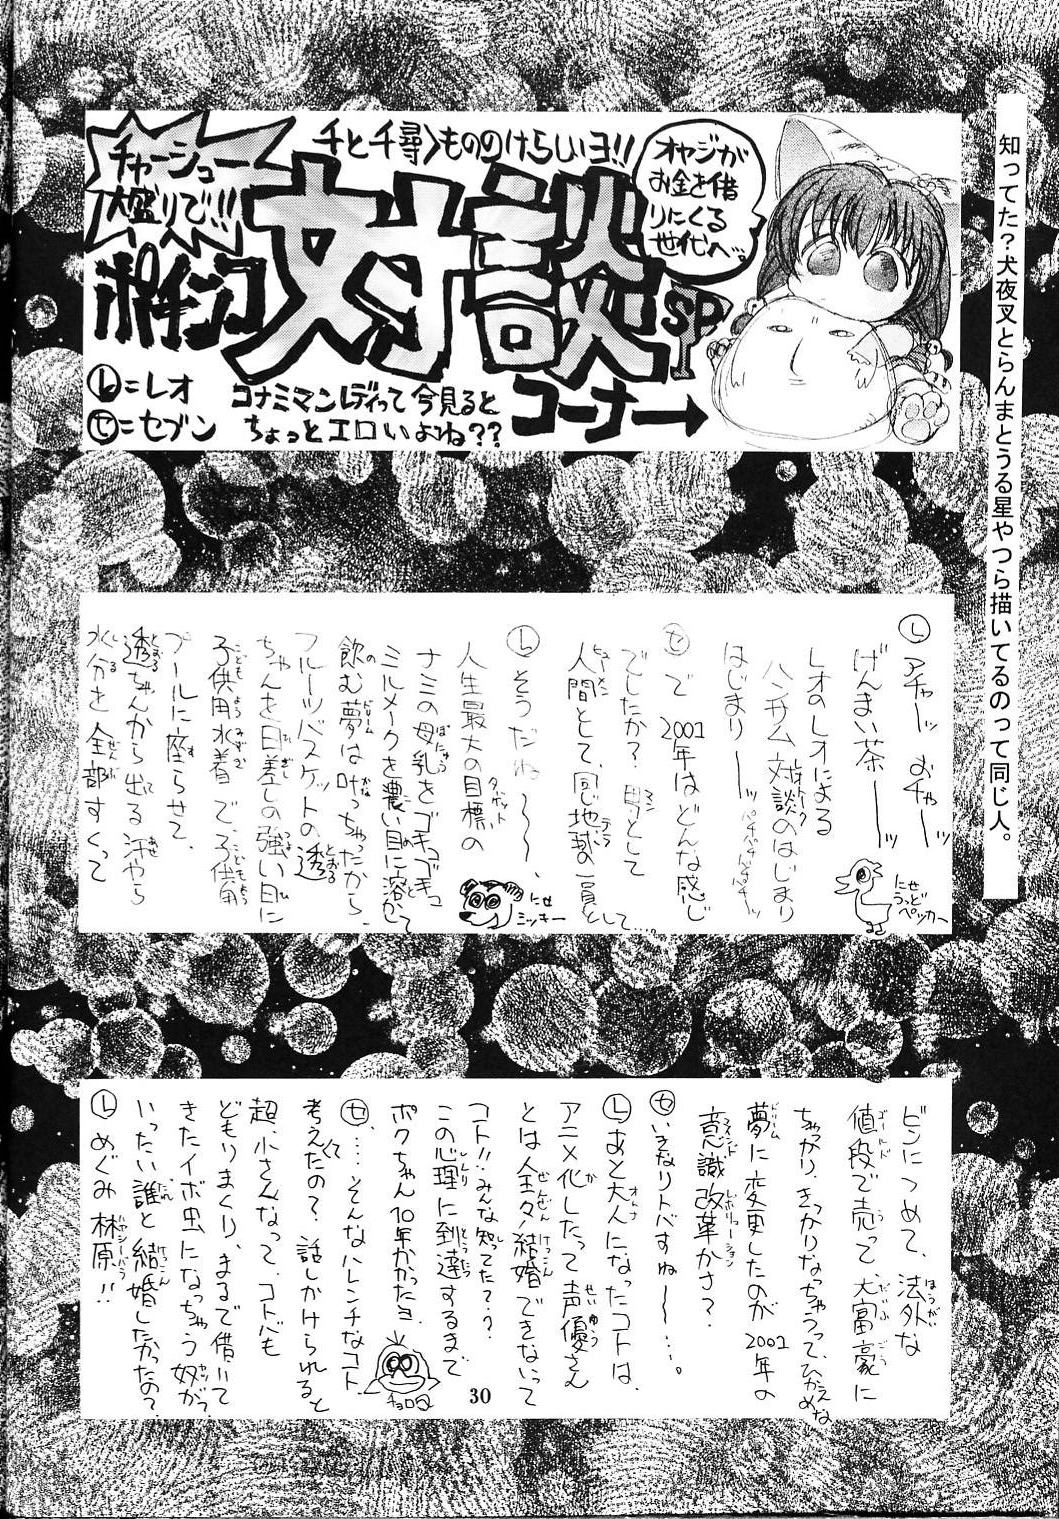 知ってた？犬夜叉とらんまとうる星やつら描いてるのって同じ人。
千と千尋〉もののけらしいヨ!!
チャーシュー
大盛りで!!
オヤジが
お金を借
りにくる
世代へ。
対談
SP
コーナー→
Ⓛ=レオ
㋝=セブン
コナミマンレディって今見ると
ちょっとエロいよね??
Ⓛアチャーッ おチャーッ
げんまい茶――ッ
レオのレオによる
ハンサム対談のはじまり
はじまり――ッ パチパチパチパチッ
㋝で 2001年はどんな感じ
でしたか?
人間として、同じ地球の一員として…。
Ⓛそうだね〜〜、
人生最大の目標の
ナミの母乳をゴキュゴキュ
ミルメークを濃い目に溶かして
飲む夢は叶っちゃったから、
フルーツバスケットの透
ちゃんを日差しの強い日に
子供用水着で、子供用
プールに座らせて、
透ちゃんから出る汗やら
水分を全部すくって
にせ
うっどペッカー
にせ
ミッキー
ビンにつめて、法外な
値段で売って大富豪に
ちゃっかり、きっかりなっちゃうってひかえめな
夢に変更したのが2001年の
意識改革かさ?
㋝いきなりトバすね〜〜…。
Ⓛあと大人になったコトは、
アニメ化したって声優さん
とは全々結婚できないって
コト!!みんな知ってた??
この心理に到達するまで
ボクちゃん10年かかったヨ、
㋝…そんなハレンチなコト
考えてたの? 話しかけられると
超、小さくなって、コトバも
どもりまくり、まるで借りて
きたイボ虫になっちゃう奴が?
いったい誰と結婚したかったの?
Ⓛめぐみ林原!!
チョロQ
30